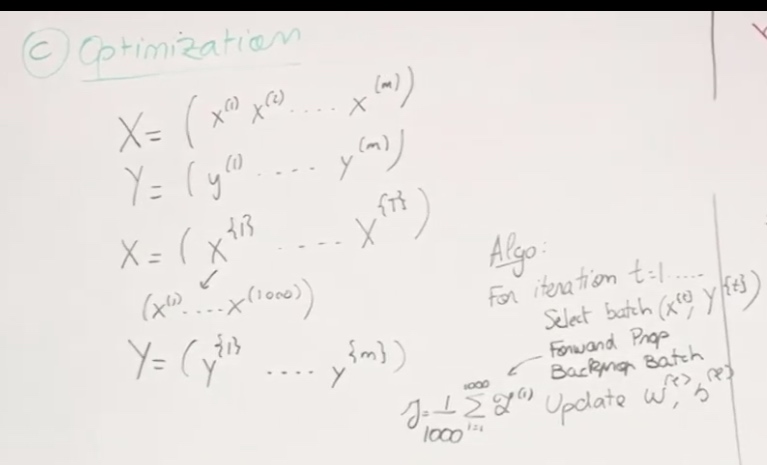 C Optimization
X = ( x^(1) x^(2) .... x^(m) )
Y = ( y^(1) .... y^(m) )
X = ( X^{1} .... X^{T} )
(x^(1) .... x^(1000))
Y = ( y^{1} .... y^{m} )
Algo:
For iteration t=1.....
Select batch (X^{t}, Y^{t})
Forward Prop
Backprop Batch
J = 1/1000 Σ_{i=1}^{1000} L^(i)
Update w^, b^